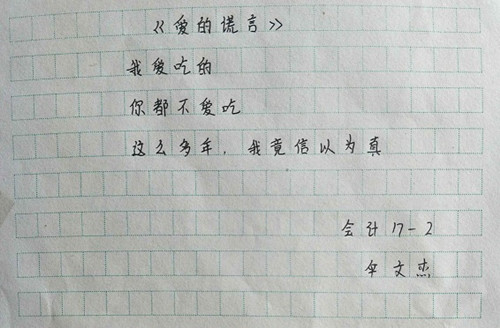 《爱的谎言》
我爱吃的
你都不爱吃
这么多年，我竟信以为真
会计17-2
伞文杰